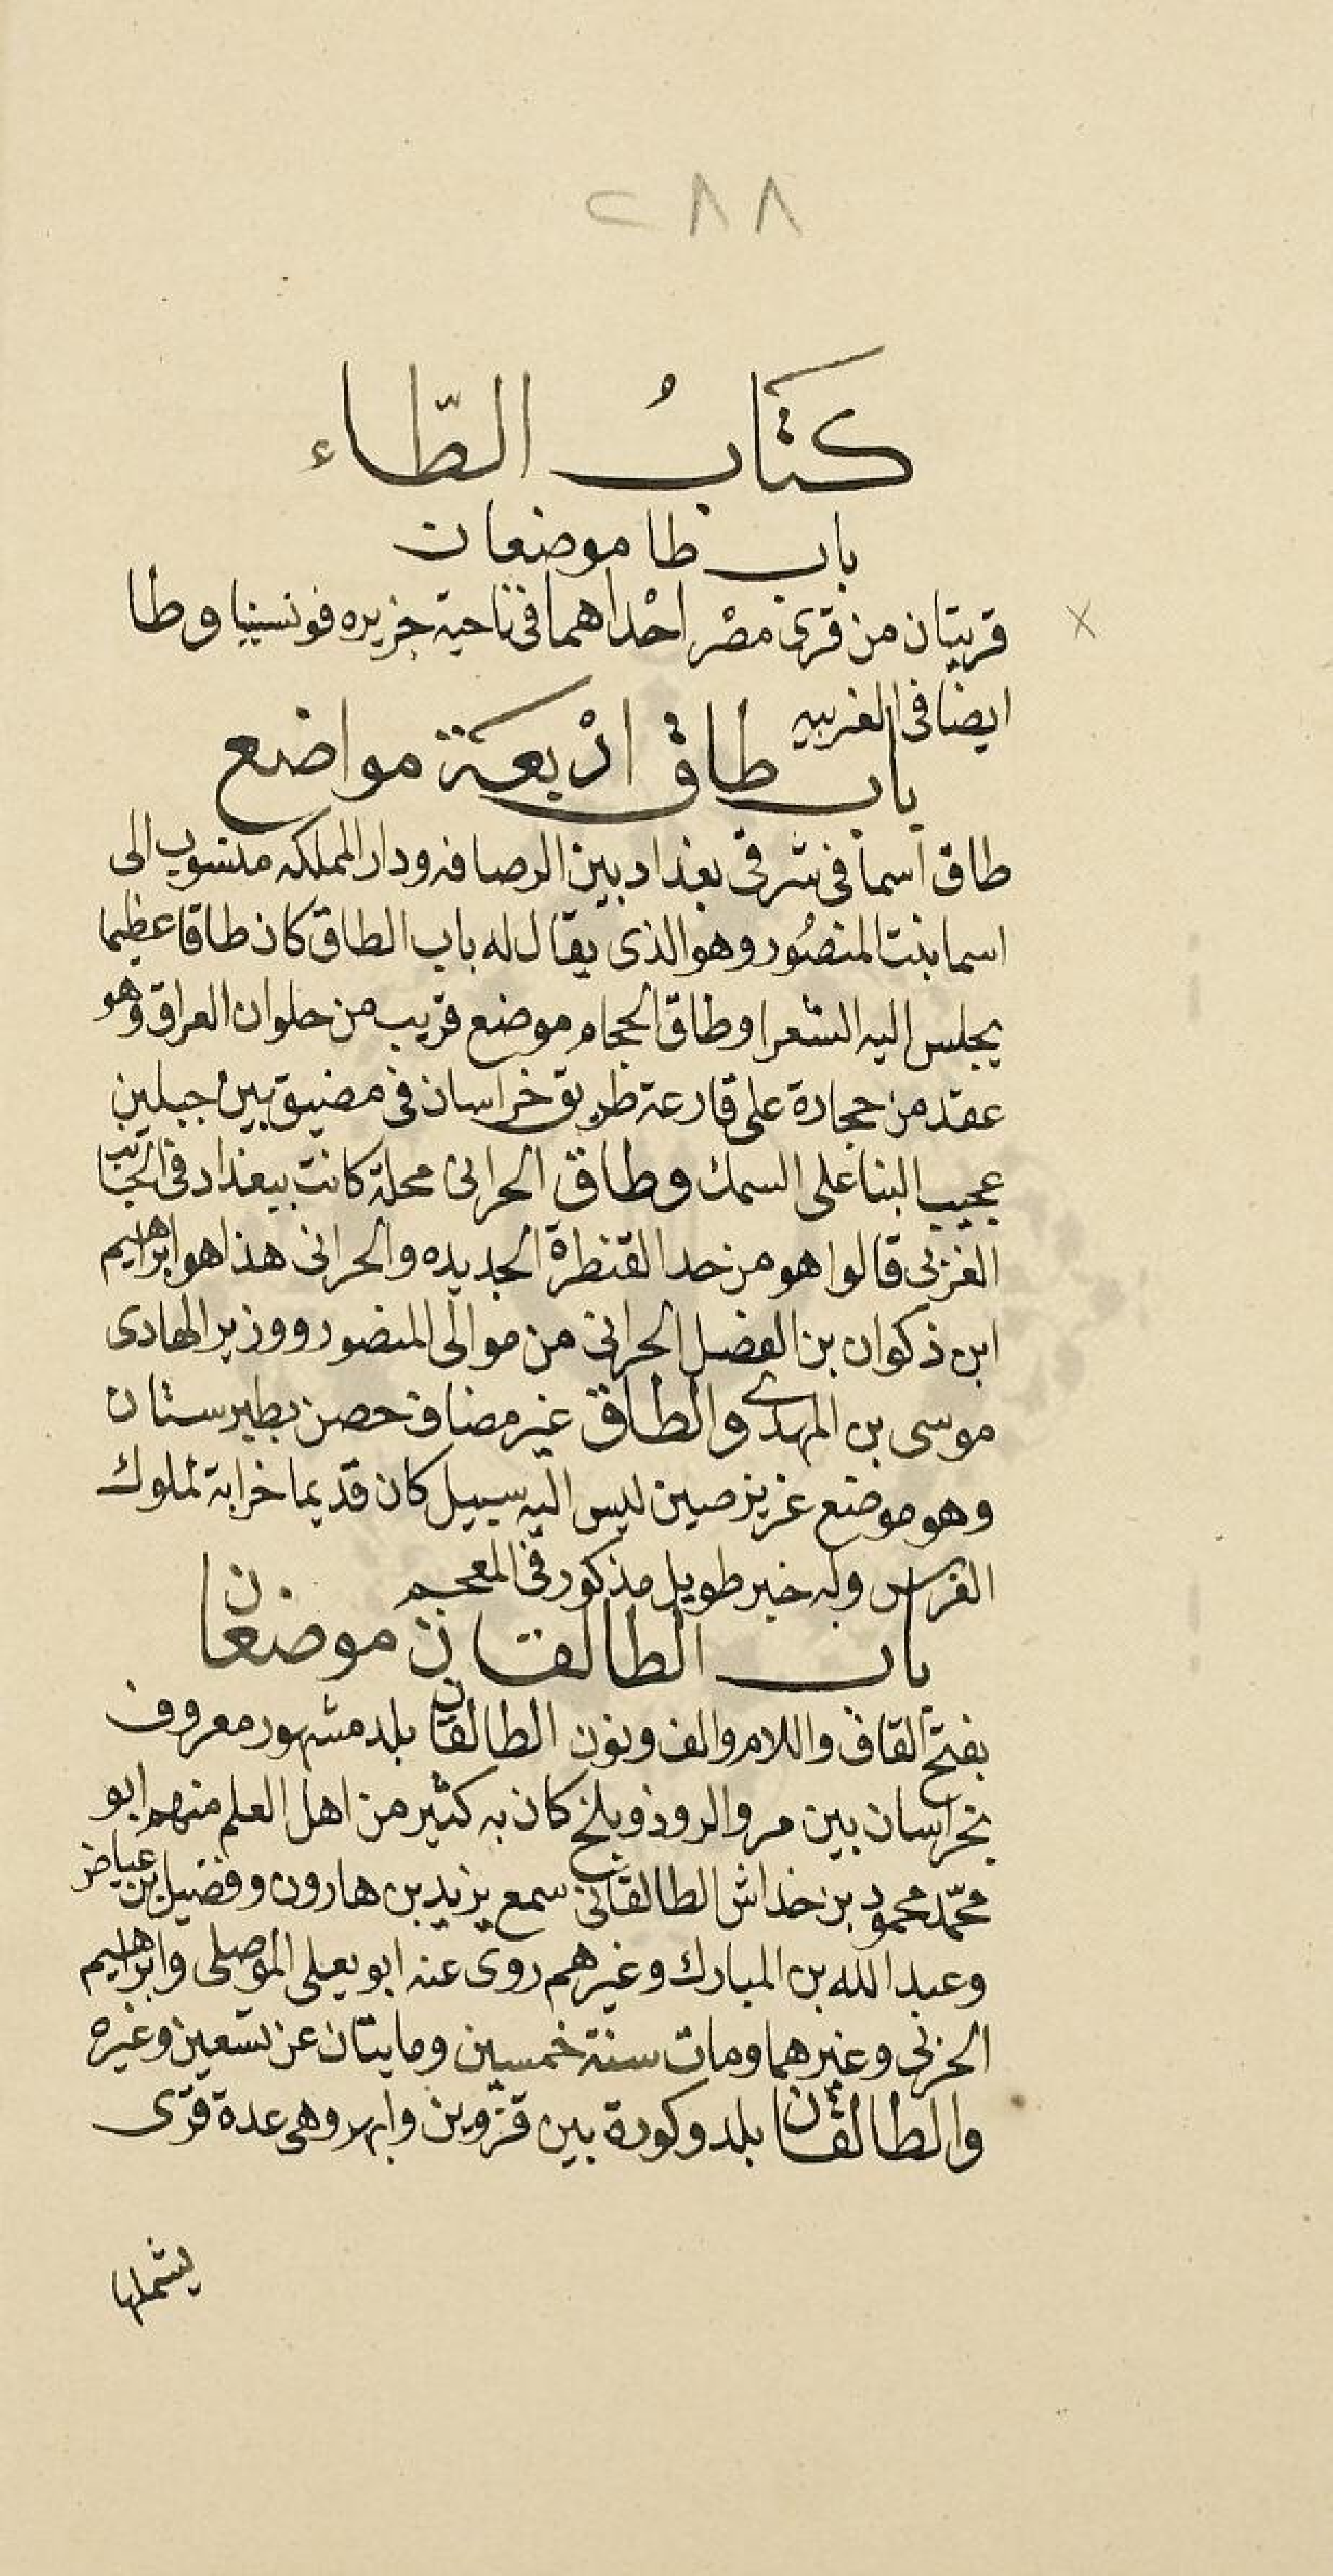 ٢٨٨
كتابُ الطّاء
باب طا موضعان
قريتان من قرى مصْر احْداهما فى ناحية جزيره قونسينيا وطا
ايضا فى الغربيه
باب طاق ارْبعة مواضع
طاق اسما فى شرقى بغداد بين الرصافه ودار المملكه منسوب الى
اسما بنت المنصُور وهو الذى يقال له باب الطاق كان طاقا عظيما
يجلس اليه الشعرا وطاق الحجام موضع قريب من حلوان العراق وهو
عقد من حجارة على قارعة طريق خراسان فى مضيق بين جبلين
عجيب البنا على السمك وطاق الحرانى محلة كانت ببغداد فى الجانب
الغربى قالوا هو من حد القنطرة الجديده والحرانى هذا هو ابراهيم
ابن ذكوان بن الفضل الحرانى من موالى المنصور ووزير الهادى
موسى بن المهدى والطاق غير مضاف حصن بطبرستان
وهو موضع عزيز صين ليس اليه سبيل كان قديما خزانة لملوك
الفرس وله خبر طويل مذكور فى المعجم
باب الطالقان موضعان
بفتح القاف واللام والف ونون الطالقان بلد مشهور معروف
بخراسان بين مرو الروذ وبلخ كان به كثير من اهل العلم منهم ابو
محمّد محمود بن خداش الطالقانى سمع يزيد بن هارون وفضيل بن عياض
وعبد الله بن المبارك وغيرهم روى عنه ابو يعلى الموصلى وابراهيم
الحربى وغيرهما ومات سنة خمسين ومايتان عن تسعين وغيره
والطالقان بلد وكورة بين قزوين وابهر وهى عدة قرى
يشملها